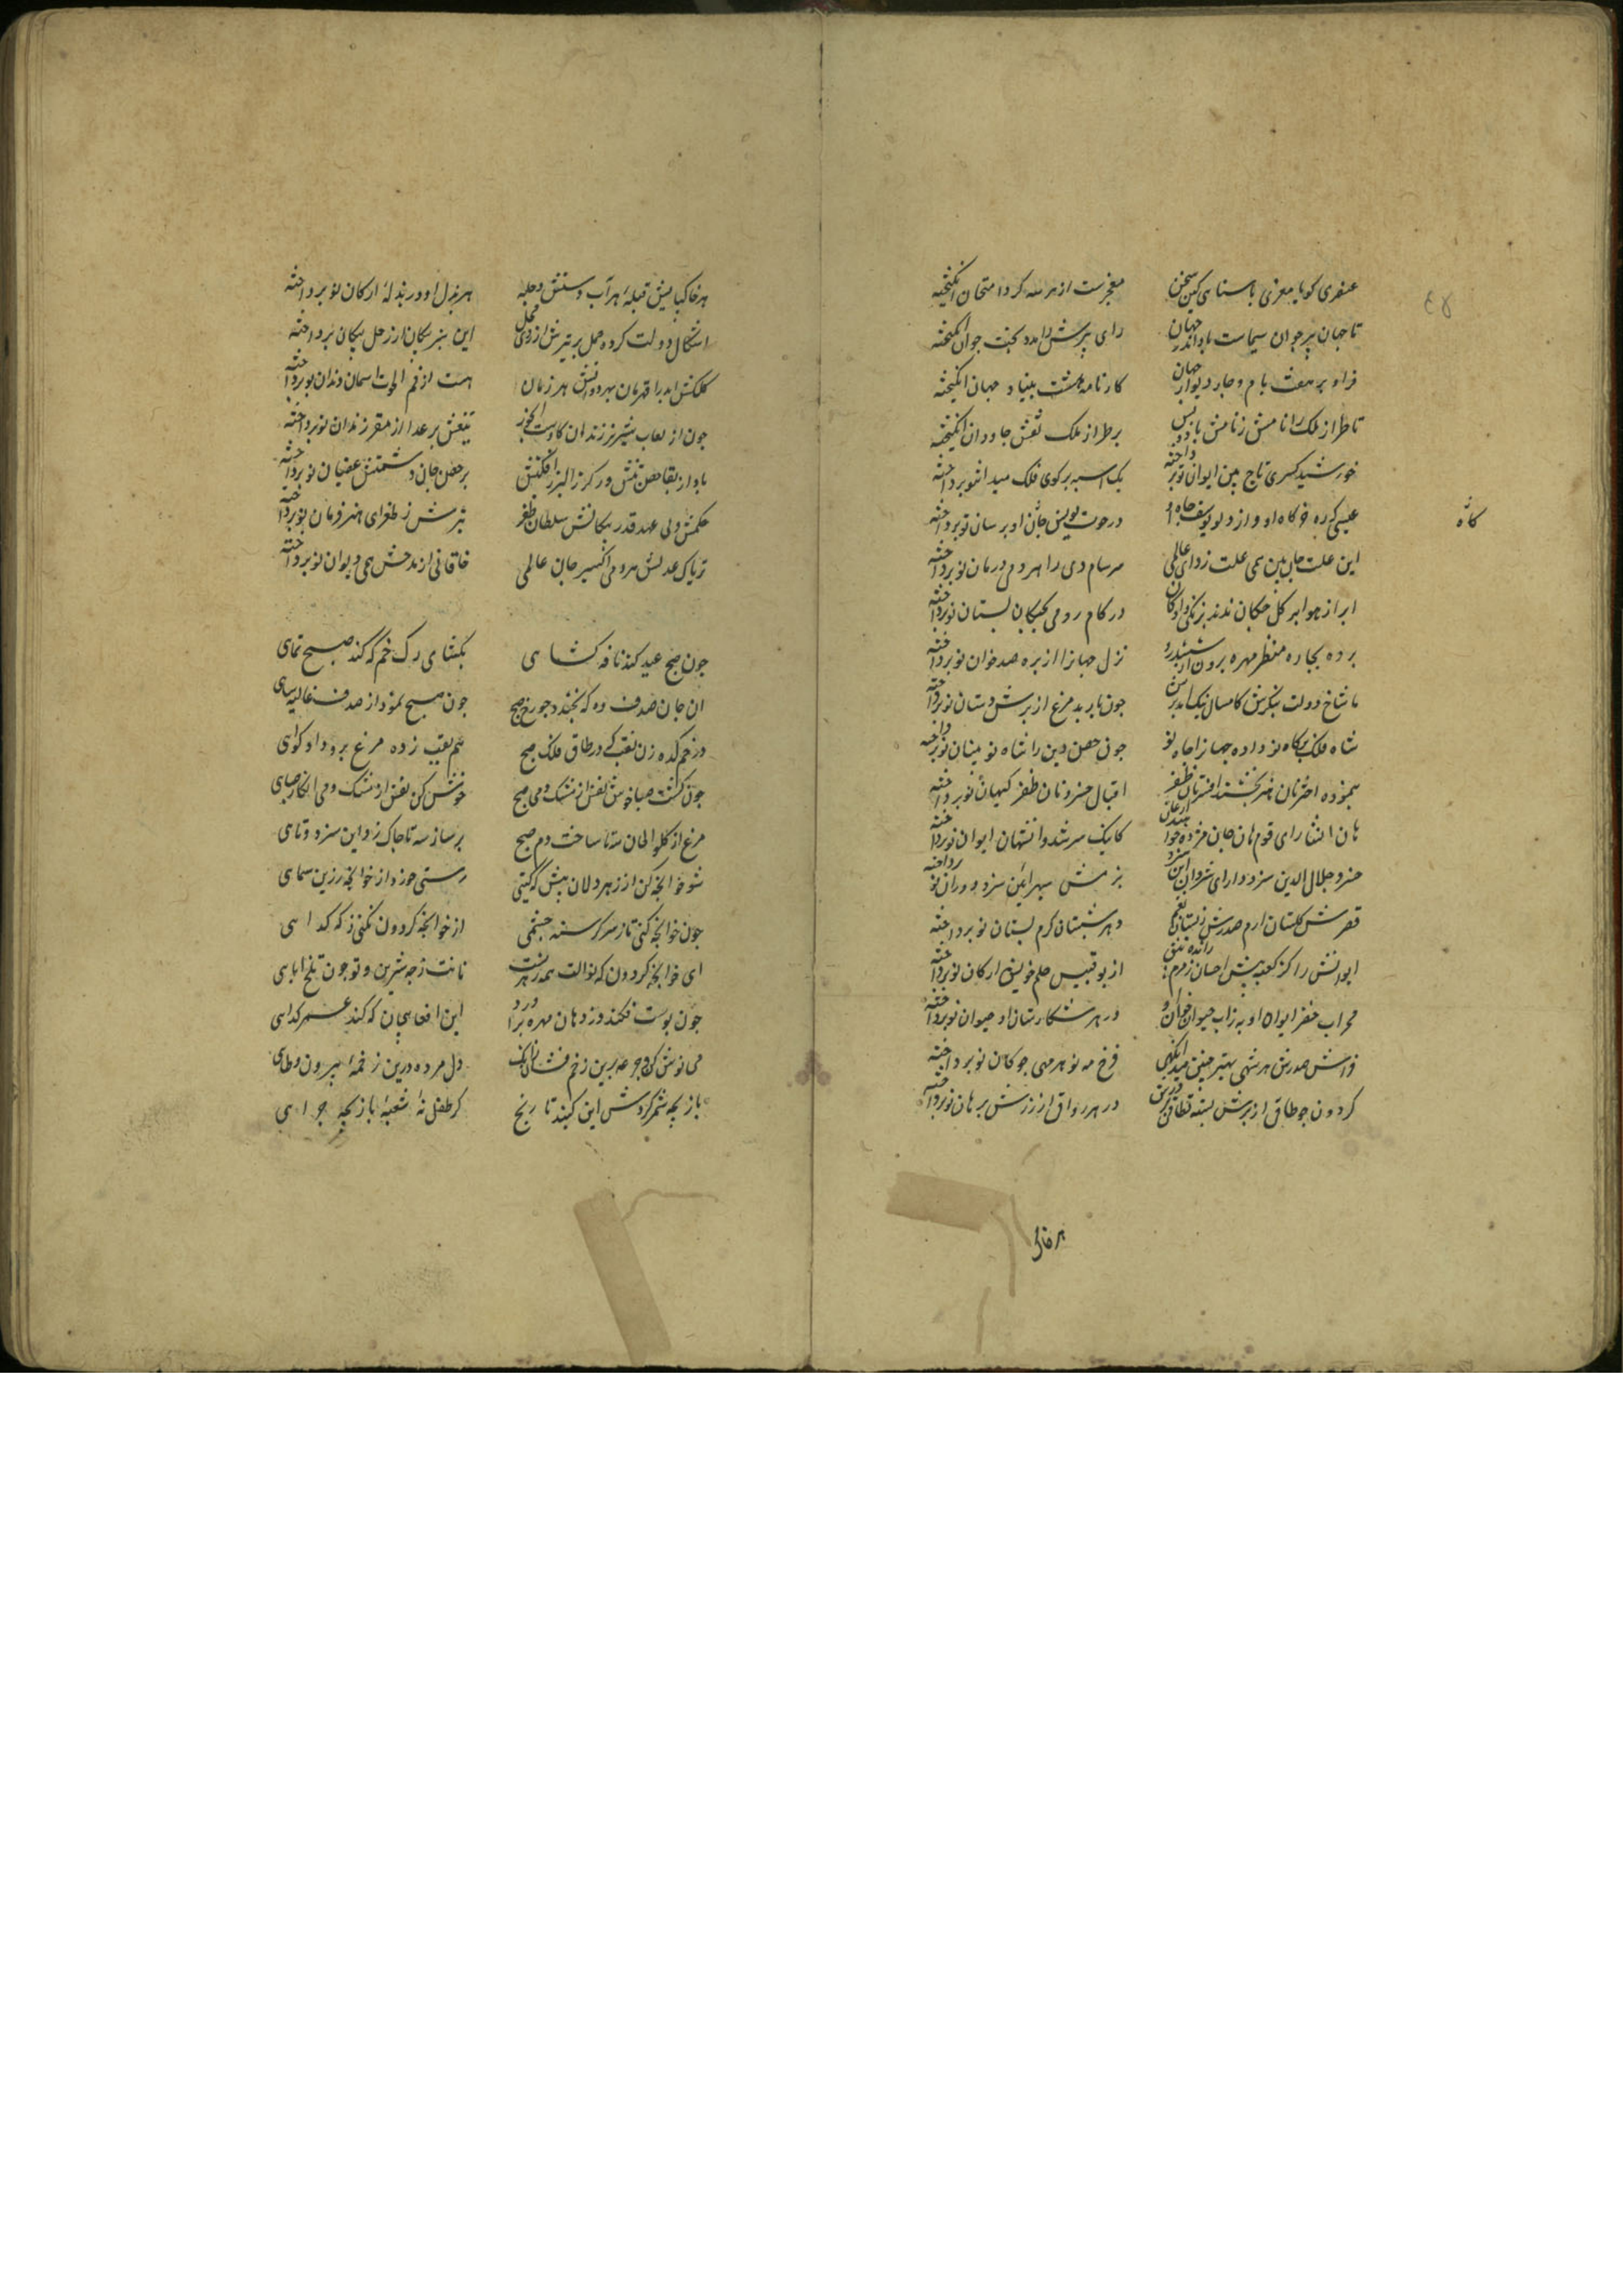 عنصری کو یا معزی یا سنای کین سخن معجزست از هر سه کرد امتحان انگیخته
تا جهان پیر جوان سیماست باد اندر جهان رای پیرش را مدد بخت جوان انگیخته
فر او بر هفت بام و چار دیوار جهان کارنامه هشت بنیاد جهان انگیخته
تا طراز ملک را نامش ز نامش باد و بس بر طراز ملک نقش جاودان انگیخته
خورشید کسری تاج بین ایوان نو پرداخته یک اسبه بر کوی فلک میدان نو پرداخته
عیسی کده خرگاه او وز دلو یوسف چاه او در حوت یونس جان او برسان نو پرداخته
کاه
این علت جان بین همی علت زدای عالمی سرسام دی را هر دمی درمان نو پرداخته
ابر از هوا بر گل چکان ماند بزنگی دایگان در کام رومی بچگان پستان نو پرداخته
نزل جهان را از بره صد خوان نو پرداخته
با شاخ دولت بنگرش کامسال نیک آمد برش چون بار بد مرغ از برش دستان نو پرداخته
شاه فلک بر گاه نو داده جهان را جاه نو چون حصن دین را شاه نو بنیان نو پرداخته
بنموده اختران هنر بخشنده افسران ظفر اقبال خسرو نان ظفر کیهان نو پرداخته
کاینک سر شروانشهان ایوان نو پرداخته
خسرو جلال الدین سزد دارای شروان این سزد بزمش سپهر آیین سزد دوران نو پرداخته
قصرش گلستان ارم صدرش دبستان نعم در هر شبستان کرم بستان نو پرداخته
ایوانش را کز کعبه بیش احسان زمزم رانده پیش از بوقبیس حلم خویش ارکان نو پرداخته
محراب خضر ایوان او به زآب حیوان خوان او در هر شکارستان او حیوان نو پرداخته
فراش صدرش هر شهی بهتر جنیبت مه فرخ مه نو هر مهی چوگان نو پرداخته
گردون چو طاقی از برش بسته نطاقی بر درش در هر رواق از زرش برهان نو پرداخته
هرخاک
هر خاک پایش قبله هر آب دستش دجله هر بذل او در بذله ارکان نو پرداخته
اشکال دولت کرده حل بر تیرش از روی محل این سبز پیکان از زحل پیکان نو پرداخته
کلکش ابد را قهرمان بهر دوانش هر زمان هست از فم الحوت آسمان دندان نو پرداخته
چون از لعاب شیر نر زندان کاوست تیغش بر عدا از سقر زندان نو پرداخته
باد از بقا حصن تنش ور گرز البرز افکنش بر حصن جان دشمنش عصیان نو پرداخته
حکمش ولی عهد قدر پیکانش سلطان ظفر تیرش ز طغرای هنر فرمان نو پرداخته
تریاک عدلش هر دمی اکسیر جان عالمی خاقانی از مدحش همی دیوان نو پرداخته
چون صبح عید کند نافه گشای بگشای رگ خم که کند صبح نمای
آن جام صدف وه که بخندد چو رخ صبح چون صبح نمود از صدف غالیه سای
در خمکده زن نقب که در طاق فلک صبح هم نقب زده مرغ برو داو گوای
چون گشت صبا خوش نفس از مشک و می صبح خوش کن نفس از مشک و می انگار صبای
مرغ از گلو الحان ستا ساخت دم صبح بر سازسه تا چاک زد این سبز دو تای
شو خوانچه کن از زهر دلان پیش که گیتی رستی خورد از خوانچه زرین سمای
چون خوانچه کنی تا ز سر گرسنه چشمی از خوانچه گردون نکنی زله گدای
ای خوانچه گردون که نوالت همه زهرست نانت ز چه شیرین و تو چون تلخ ابای
چون پوست فکند وز دهان مهره برآورد این افعی پیچان که کند عمر گدای
می نوش کن و جرعه برین زخم فشان آنک دل مرده درین زخمه پیرون وطای
بازیچه شمر گردش این گنبد نارنج گر طفل نه شعبه بازیچه چرای